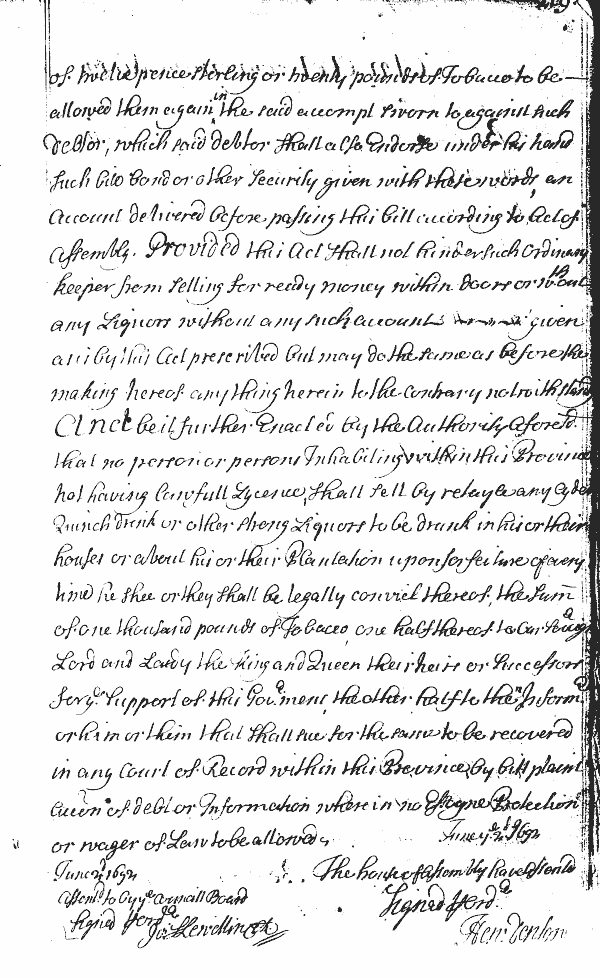 of twelve pence sterling or twenty pounds of Tobacco to be
allowed them again in the said accompt sworn to against such
debtor, which said debtor shall also Endorse under his hand
such bill bond or other Security given with these words, an
Account delivered before passing this bill according to act of
Assembly. Provided this Act shall not hinder such Ordinary
keeper from selling for ready money within doors or wthout
any Liquors without any such account given
as is by this Act prescribed but may do the same as before the
making hereof any thing herein to the contrary notwithstand
And be it further Enacted by the Authority aforesd.
that no person or persons Inhabiting within this Province
not having lawfull Lycence, shall sell by retayle any Cyder
Quinch drink or other strong Liquors to be drunk in his or their
houses or about his or their Plantation upon forfeiture of every
time he shee or they shall be legally convict thereof, the Sum
of one thousand pounds of Tobacco, one half thereof to Our Soveraign
Lord and Lady the King and Queen their heirs or Successors
for ye Support of this Governmt, the other half to the Informr
or him or them that shall sue for the same to be recovered
in any Court of Record within this Province, by bill plaint
accon of debt or Information wherein no Essoyne Protection
or wager of Law to be allowed.
June ye 2d 1692
June 2d 1692
The house of Assembly have assented
Assented to by ye Councill Board
Signed p ordr
Signed p ordr
Jo: Llewellin
Hen: Denton